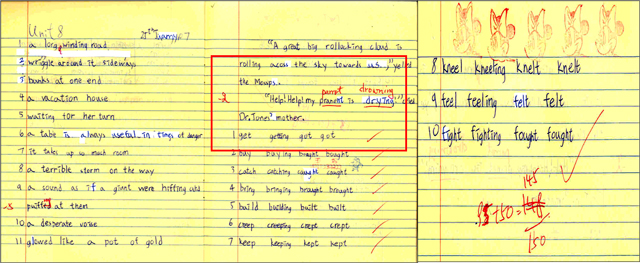 Unit 8
1 a long winding road
2 wriggle around it sideways
3 bumbs at one end
4 a vacation house
5 waiting for her turn
6 a tabe is always useful in times of danger
7 it takes up so much room
8 a terrible storm on the way
9 a sound as if a giant were hiffing and
puffed at them
10 a desperate voise
11 glowed like a pot of gold
"A great big rollocking cloud is
rolling acoss the sky towards us," yelled
the Meups.
parent drowning
-2 "Help! Help! my pranent is drying," cried
Dr. Jones' mother.
1 get getting got got
2 buy buying bought bought
3 catch catching caught caught
4 bring bringing brought brought
5 build building built built
6 creep creeping crept crept
7 keep keeping kept kept
8 kneel kneeling knelt knelt
9 feel feeling felt felt
10 fight fighting fought fought
145
150